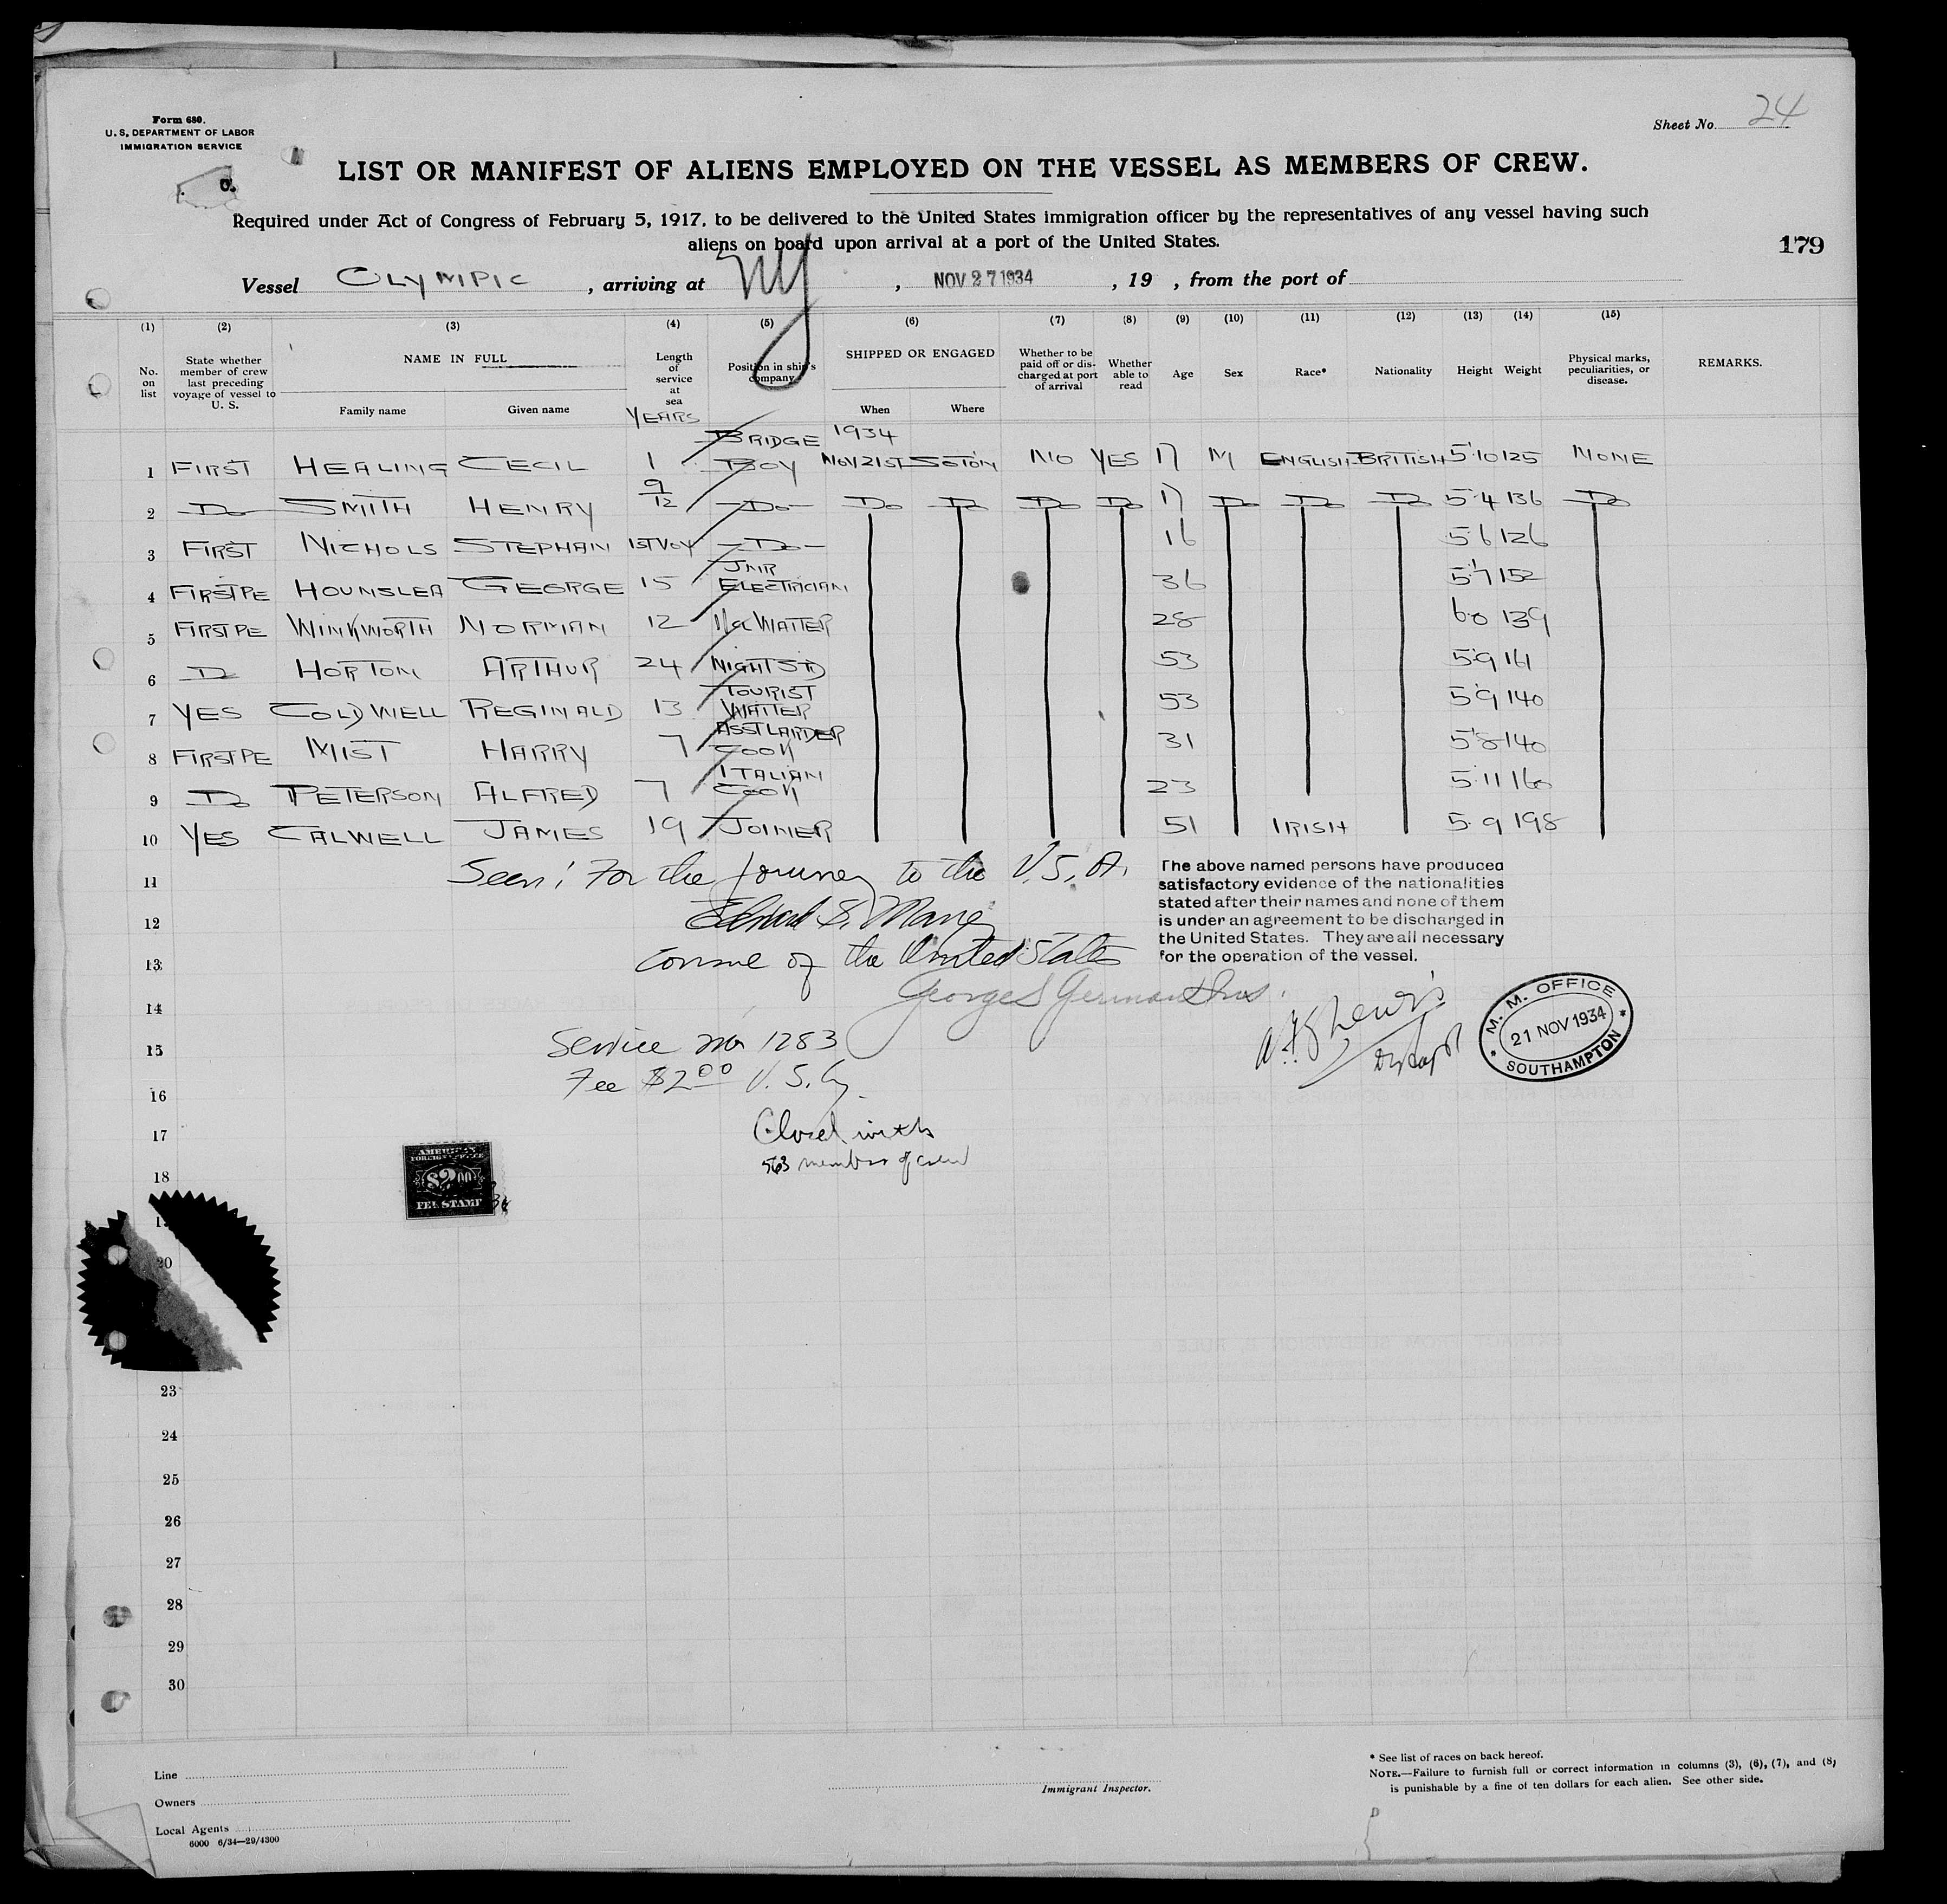 Form 680.
U. S. DEPARTMENT OF LABOR
IMMIGRATION SERVICE
Sheet No. 24
LIST OR MANIFEST OF ALIENS EMPLOYED ON THE VESSEL AS MEMBERS OF CREW.
Required under Act of Congress of February 5, 1917, to be delivered to the United States immigration officer by the representatives of any vessel having such
aliens on board upon arrival at a port of the United States.
179
Vessel OLYMPIC, arriving at NY, NOV 27 1934, 19 , from the port of
(1) (2) (3) (4) (5) (6) (7) (8) (9) (10) (11) (12) (13) (14) (15)
No. on list State whether member of crew last preceding voyage of vessel to U. S. NAME IN FULL Family name Given name Length of service at sea Position in ship's company SHIPPED OR ENGAGED When Where Whether to be paid off or discharged at port of arrival Whether able to read Age Sex Race* Nationality Height Weight Physical marks, peculiarities, or disease. REMARKS.
YEARS
BRIDGE 1934
1 FIRST HEALING CECIL 1 BOY NOV 21ST SOTON NO YES 17 M ENGLISH BRITISH 5'10 125 NONE
2 Do SMITH HENRY 9/12 Do Do Do Do Do 17 Do Do Do 5'4 136 Do
3 FIRST NICHOLS STEPHAN 1ST VOY Do 16 5'6 126
JNR
4 FIRSTPE HOUNSLEA GEORGE 15 ELECTRICIAN 36 5'7 152
5 FIRSTPE WINKWORTH NORMAN 12 1/CL WAITER 28 6·0 139
6 Do HORTON ARTHUR 24 NIGHT STD 53 5'9 161
TOURIST
7 YES COLDWELL REGINALD 13 WAITER 53 5'9 140
ASST LARDER
8 FIRSTPE MIST HARRY 7 COOK 31 5'8 140
ITALIAN
9 Do PETERSON ALFRED 7 COOK 23 5·11 160
10 YES CALWELL JAMES 19 JOINER 51 IRISH 5·9 198
11 Seen: For the journey to the U.S.A.
The above named persons have produced
satisfactory evidence of the nationalities
stated after their names and none of them
is under an agreement to be discharged in
the United States. They are all necessary
for the operation of the vessel.
12
13 Consul of the United States
14
M. M. OFFICE
21 NOV 1934
SOUTHAMPTON
15 Service No 1283
16 Fee $2.00 U. S. Cy.
17 Closed with
563 members of crew
18
AMERICAN
FOREIGN SERVICE
$2.00
FEE STAMP
20
23
24
25
26
27
28
29
30
Line
Owners
Local Agents
6000 6/34—29/4300
Immigrant Inspector.
* See list of races on back hereof.
NOTE.—Failure to furnish full or correct information in columns (3), (6), (7), and (8)
is punishable by a fine of ten dollars for each alien. See other side.